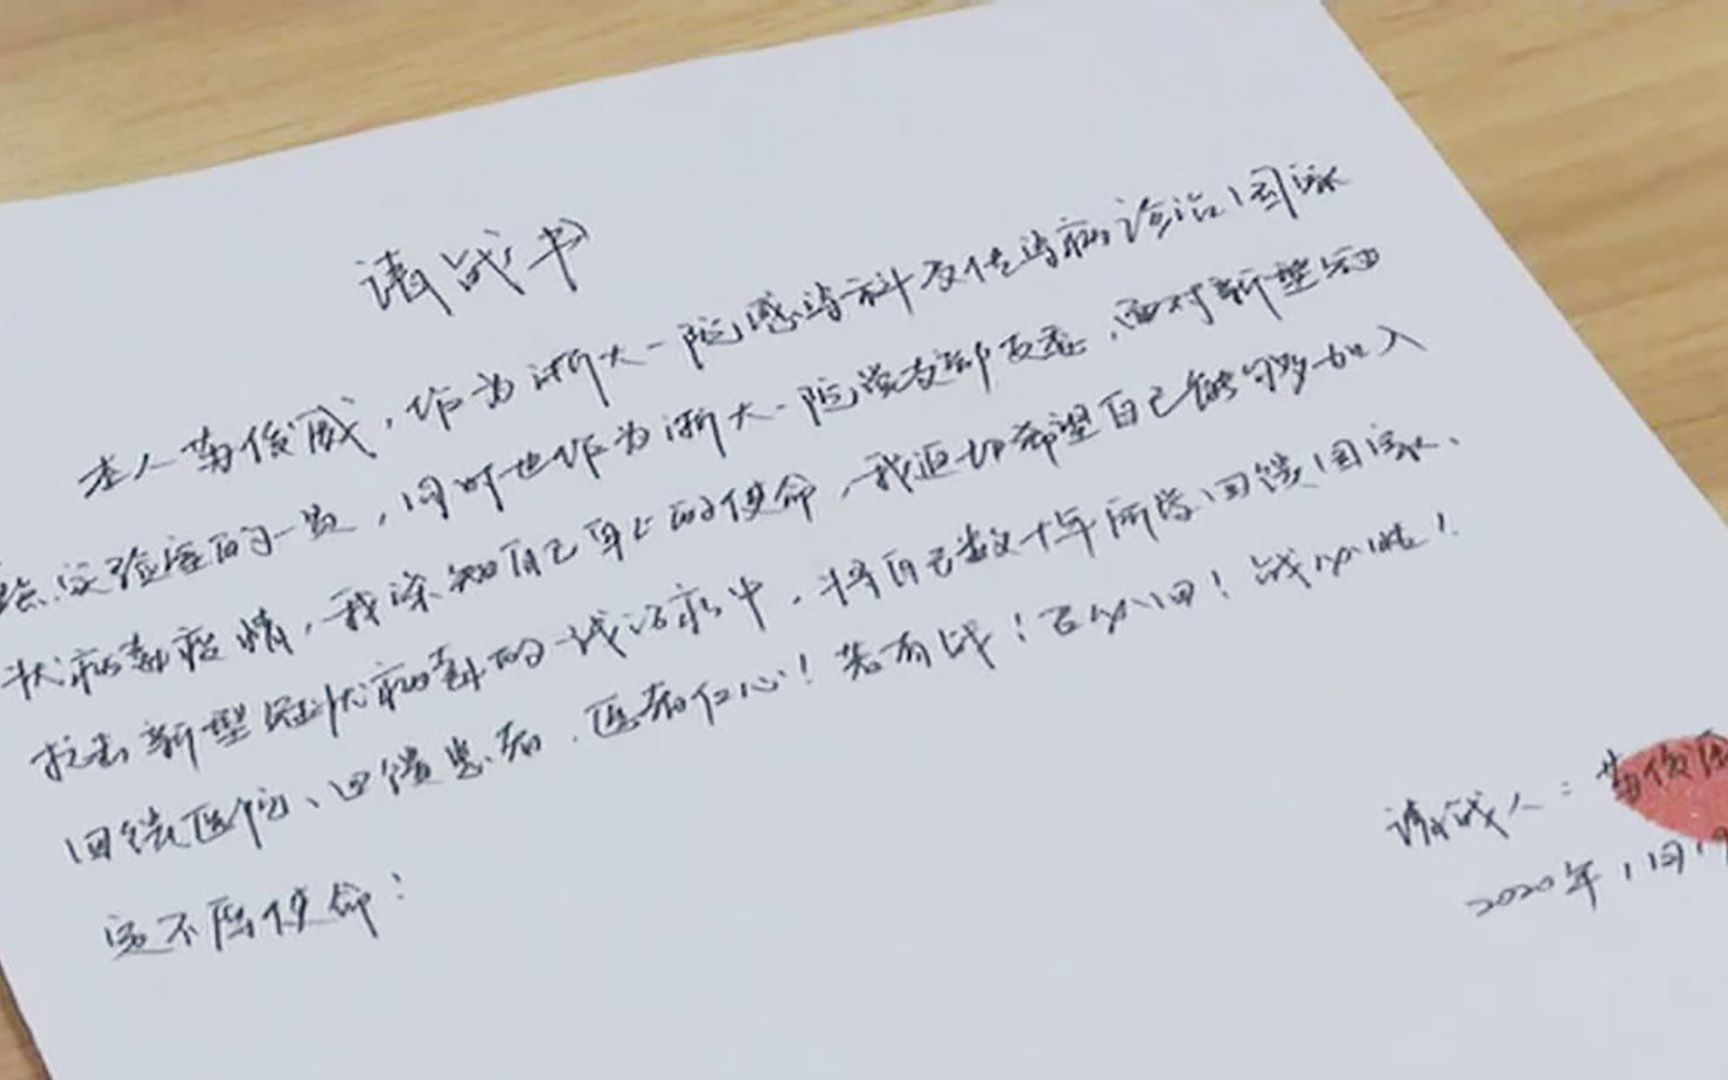 请战书
本人苏俊威，作为浙大一院感染科及传染病诊治国家
实验室的一员，同时也作为浙大一院党支部支委，面对新型冠
状病毒疫情，我深知自己身上的使命，我迫切希望自己能够加入
抗击新型冠状病毒的一线诊疗中，将自己数十年所学回馈国家、
回馈医院、回馈患者，医者仁心！若有战！召必回！战必胜！
定不辱使命！
请战人：俊
2020年1月